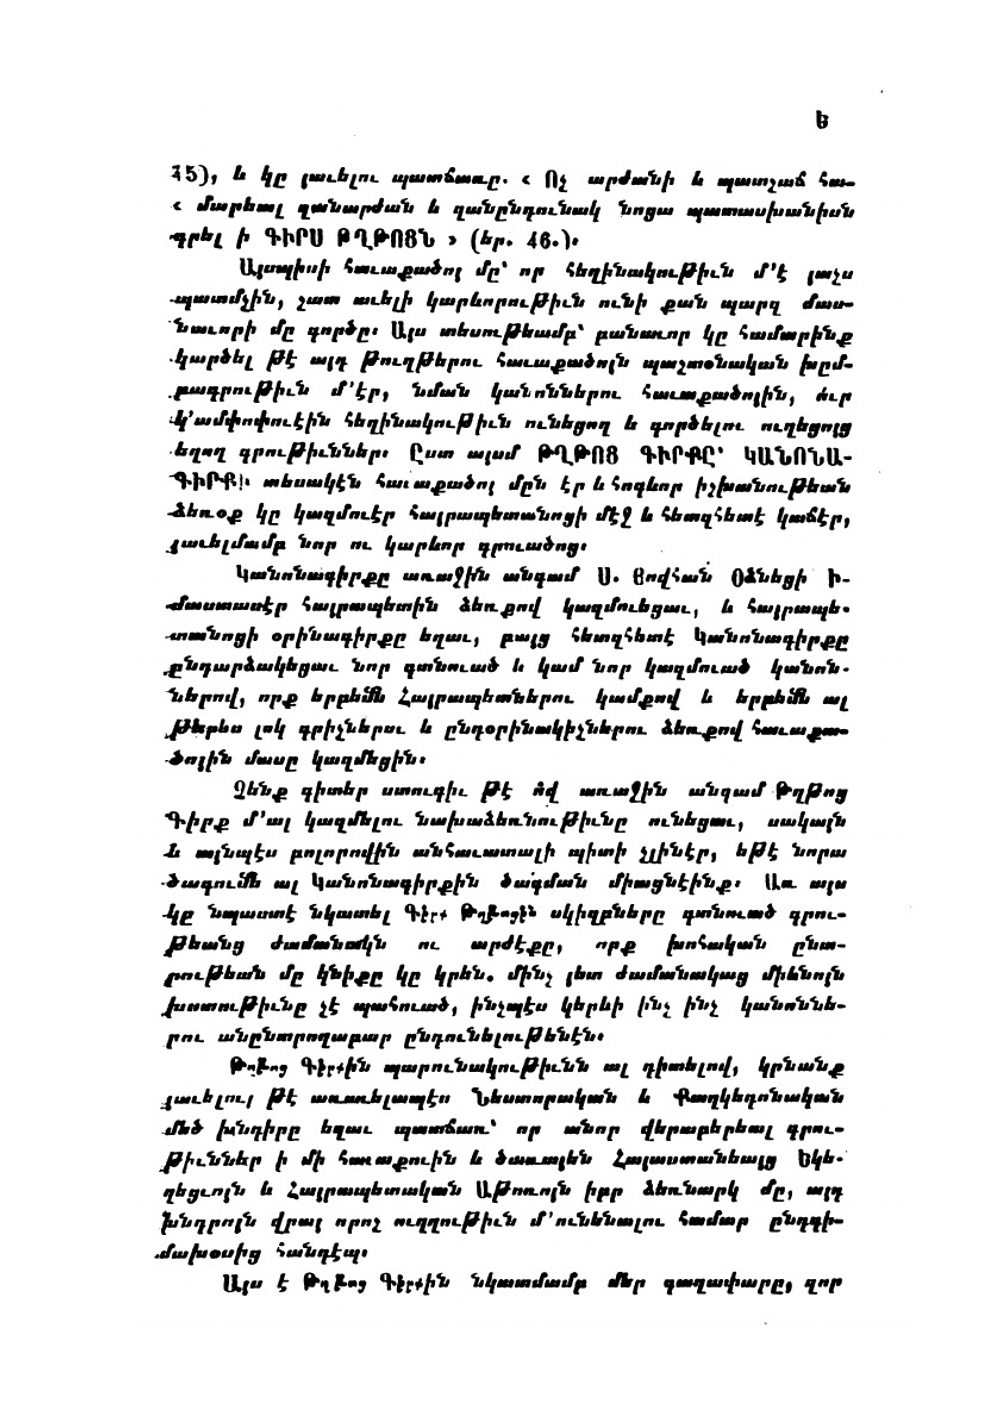 Ե
45), և կը յաւելու պատճառը. « Ոչ արժանի և պատշաճ հա-
« մարեալ զանարժան և զանընդունակ նոցա պատասխանիսն
գրել ի ԳԻՐՍ ԹՂԹՈՑՆ » (եր. 46.)։
Այսպիսի հաւաքածոյ մը՝ որ հեղինակութիւն մ՚է յաչս
պատմչին, շատ աւելի կարևորութիւն ունի քան պարզ մաս-
նաւորի մը գործը։ Այս տեսութեամբ՝ բանաւոր կը համարինք
կարծել թէ այդ Թուղթերու հաւաքածոյն պաշտօնական խըմ-
բագրութիւն մ՚էր, նման կանոններու հաւաքածոյին, ուր
կ՚ամփոփուէին հեղինակութիւն ունեցող և գործելու ուղեցոյց
եղող գրութիւններ։ Ըստ այսմ ԹՂԹՈՑ ԳԻՐՔԸ՝ ԿԱՆՈՆԱ-
ԳԻՐՔԻ տեսակէն հաւաքածոյ մըն էր և հոգևոր իշխանութեան
ձեռօք կը կազմուէր հայրապետանոցի մէջ և հետզհետէ կաճէր,
յաւելմամբ նոր ու կարևոր գրուածոց։
Կանոնագիրքը առաջին անգամ Ս. Յովհան Օձնեցի ի-
մաստասէր հայրապետին ձեռքով կազմուեցաւ, և հայրապե-
տանոցի օրինագիրքը եղաւ, բայց հետզհետէ Կանոնագիրքը
ընդարձակեցաւ նոր գտնուած և կամ նոր կազմուած կանոն-
ներով, որք երբեմն Հայրապետներու կամքով և երբեմն ալ
թերևս լոկ գրիչներու և ընդօրինակիչներու ձեռքով հաւաքա-
ծոյին մասը կազմեցին։
Չենք գիտեր ստուգիւ թէ ով առաջին անգամ Թղթոց
Գիրք մ՚ալ կազմելու նախաձեռնութիւնը ունեցաւ, սակայն
և այնպէս բոլորովին անհաւատալի պիտի չլինէր, եթէ նորա
ծագումն ալ Կանոնագիրքին ծագման միացնէինք։ Առ այս
կը նպաստէ նկատել Գիրք Թղթոցին սկիզբները գտնուած գրու-
թեանց ժամանակն ու արժէքը, որք խոհական ընտ-
րութեան մը կնիքը կը կրեն. մինչ յետ ժամանակաց միևնոյն
խստութիւնը չէ պահուած, ինչպէս կերևի ինչ ինչ կանոննե-
րու անընտրողաբար ընդունելութենէն։
Թղթոց Գիրքին պարունակութիւնն ալ դիտելով, կրնանք
յաւելուլ թէ առաւելապէս Նեստորական և Քաղկեդոնական
մեծ խնդիրը եղաւ պատճառ՝ որ անոր վերաբերեալ գրու-
թիւններ ի մի հաւաքուին և ծառայեն Հայաստանեայց Եկե-
ղեցւոյն և Հայրապետական Աթոռոյն իբր ձեռնարկ մը, այդ
խնդրոյն վրայ որոշ ուղղութիւն մ՚ունենալու համար ընդդի-
մախօսից հանդէպ։
Այս է Թղթոց Գիրքին նկատմամբ մեր գաղափարը, զոր